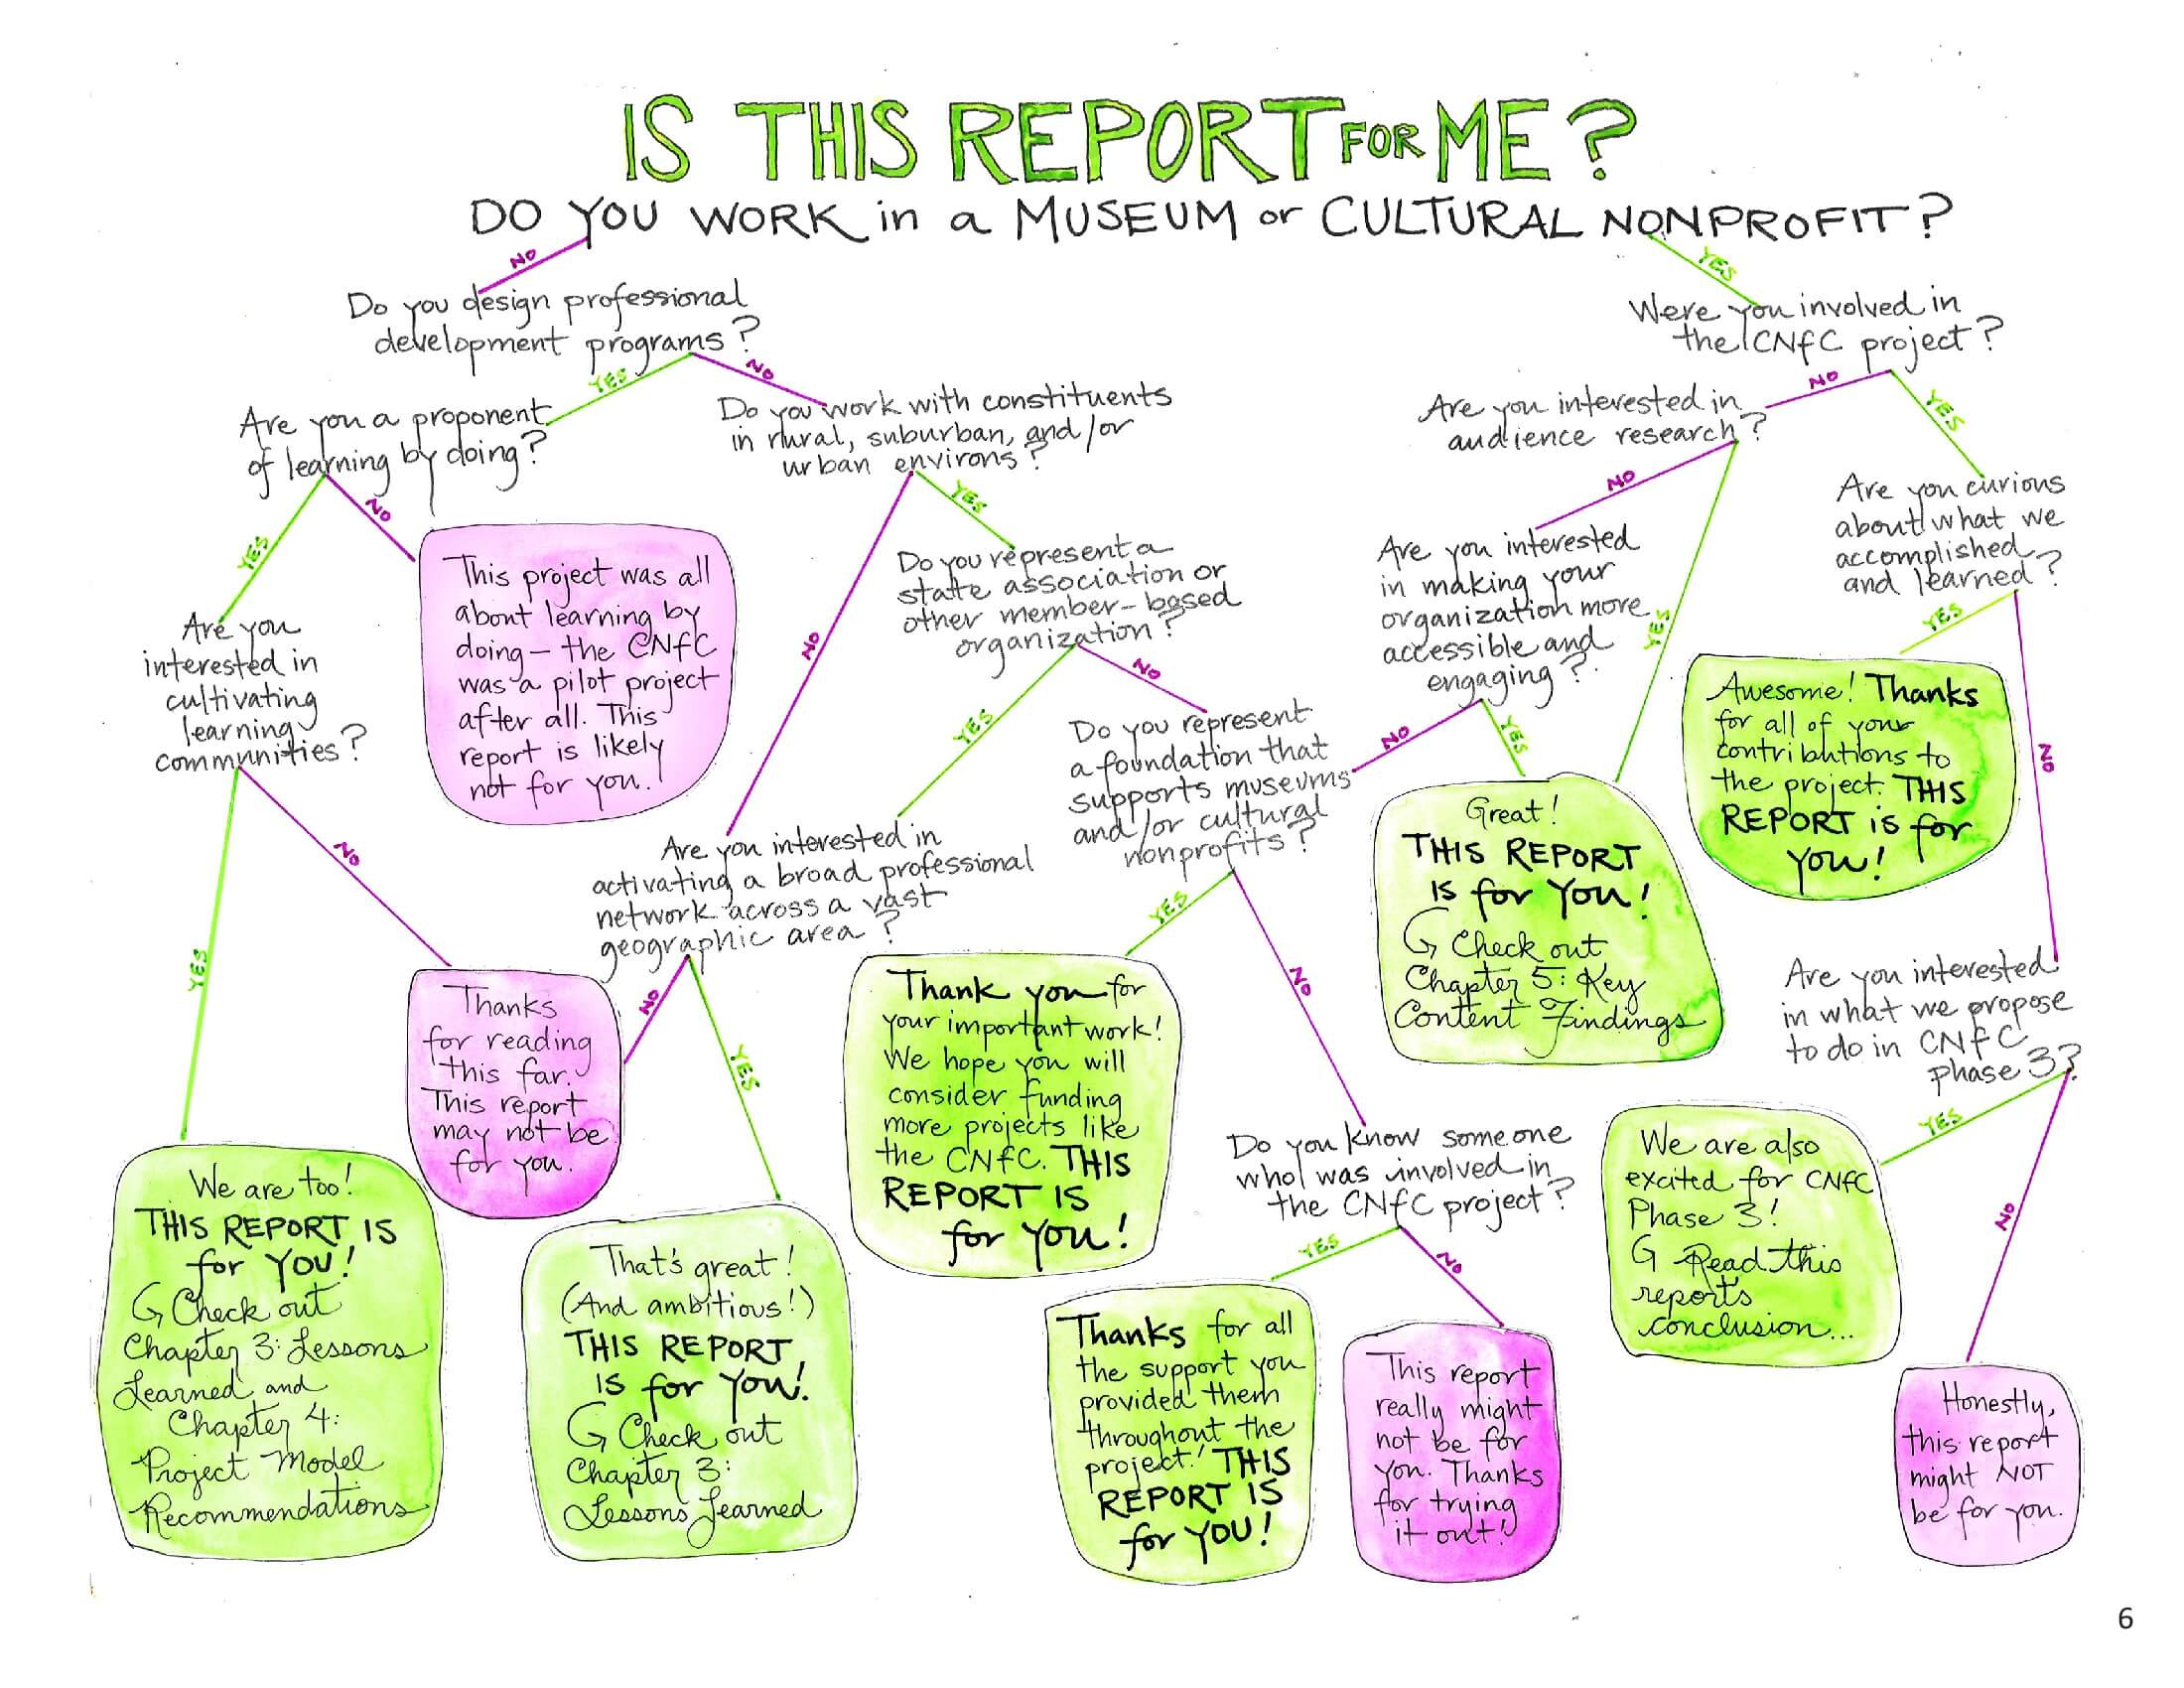 IS THIS REPORT FOR ME?
DO YOU WORK in a MUSEUM or CULTURAL NONPROFIT?
NO
YES
Do you design professional
development programs?
YES
NO
Were you involved in
the CNfC project?
NO
YES
Are you a proponent
of learning by doing?
YES
NO
Do you work with constituents
in rural, suburban, and/or
urban environs?
NO
YES
Are you interested in
audience research?
NO
YES
Are you curious
about what we
accomplished
and learned?
YES
NO
This project was all
about learning by
doing— the CNfC
was a pilot project
after all. This
report is likely
not for you.
Do you represent a
state association or
other member-based
organization?
YES
NO
Are you interested
in making your
organization more
accessible and
engaging?
NO
YES
Are you
interested in
cultivating
learning
communities?
YES
NO
Awesome! Thanks
for all of your
contributions to
the project. THIS
REPORT is for
You!
Do you represent
a foundation that
supports museums
and/or cultural
nonprofits?
YES
NO
Great!
THIS REPORT
IS for You!
Check out
Chapter 5: Key
Content Findings
Are you interested in
activating a broad professional
network across a vast
geographic area?
NO
YES
Thanks
for reading
this far.
This report
may not be
for you.
Thank you for
your important work!
We hope you will
consider funding
more projects like
the CNfC. THIS
REPORT IS
for You!
Are you interested
in what we propose
to do in CNfC
phase 3?
YES
NO
We are too!
THIS REPORT IS
for YOU!
Check out
Chapter 3: Lessons
Learned and
Chapter 4:
Project Model
Recommendations
That's great!
(And ambitious!)
THIS REPORT
IS for You!
Check out
Chapter 3:
Lessons Learned
Do you know someone
who was involved in
the CNfC project?
YES
NO
Thanks for all
the support you
provided them
throughout the
project! THIS
REPORT IS
for YOU!
This report
really might
not be for
you. Thanks
for trying
it out!
We are also
excited for CNfC
Phase 3!
Read this
reports
conclusion...
Honestly,
this report
might NOT
be for you.
6